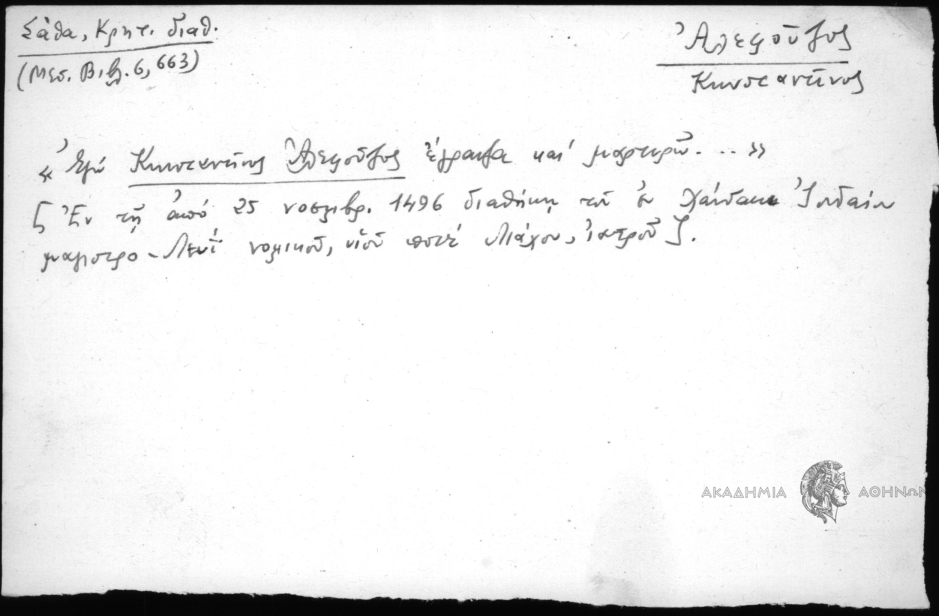 Σάθα, Κρητ. διαθ.
(Μεσ. Βιβλ. 6, 663)
Ἀλεφοῦζος
Κωνσταντῖνος
«Ἐγὼ Κωνσταντῖνος Ἀλεφοῦζος ἔγραψα καὶ μαρτυρῶ. ..»
[Ἐν τῇ ἀπό 25 νοεμβρ. 1496 διαθήκῃ τοῦ ἐν Χάνδακι Ἰουδαίου
μαγιστρο-Λευΐ νομικοῦ, υἱοῦ ποτέ Λιάχου, ἰατροῦ].
ΑΚΑΔΗΜΙΑ ΑΘΗΝΩΝ